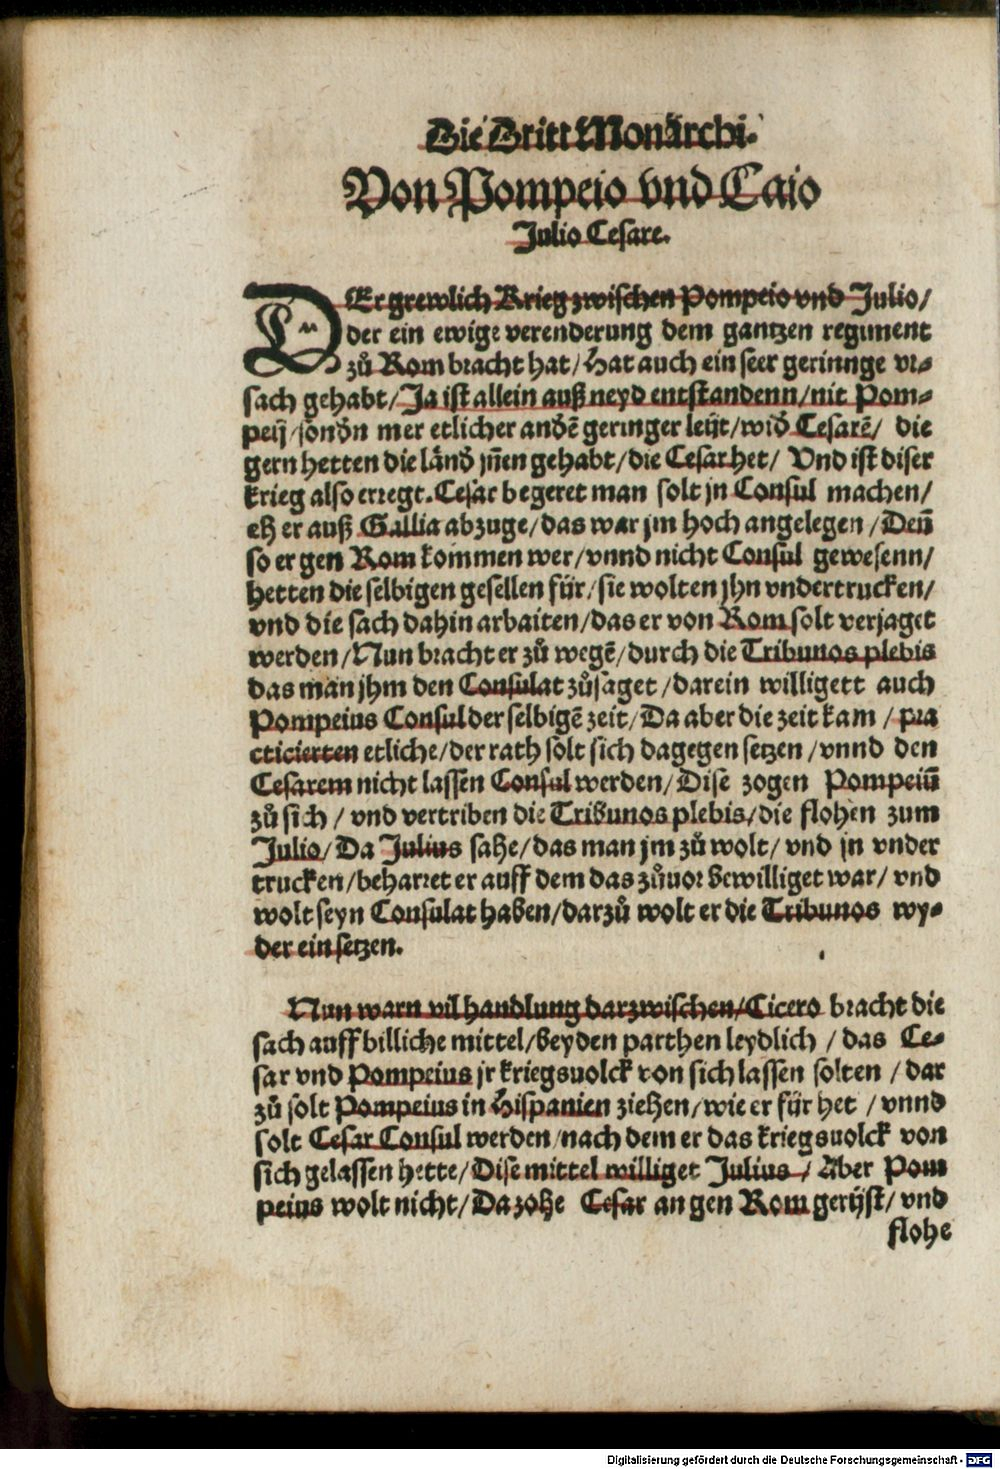 Die Dritt Monarchi.
Von Pompeio vnd Caio
Julio Cesare.
DEr grewlich Krieg zwischen Pompeio vnd Julio/
der ein ewige verenderung dem gantzen regiment
zů Rom bracht hat/ Hat auch ein seer gerinnge vr⸗
sach gehabt/ Ja ist allein auß neyd entstandenn/ nit Pom⸗
peij/ sondn̄ mer etlicher andē geringer leüt/ wid̄ Cesarē/ die
gern hetten die länd̄ jn̄en gehabt/ die Cesar het/ Vnd ist diser
krieg also erregt. Cesar begeret man solt jn Consul machen/
eh er auß Gallia abzuge/ das war jm hoch angelegen/ Den̄
so er gen Rom kommen wer/ vnnd nicht Consul gewesenn/
hetten die selbigen gesellen für/ sie wolten jhn vndertrucken/
vnd die sach dahin arbaiten/ das er von Rom solt verjaget
werden/ Nun bracht er zů wegē/ durch die Tribunos plebis
das man jhm den Consulat zůsaget/ darein willigett auch
Pompeius Consul der selbigē zeit/ Da aber die zeit kam/ pra
cticierten etliche/ der rath solt sich dagegen setzen/ vnnd den
Cesarem nicht lassen Consul werden/ Dise zogen Pompeiū
zů sich/ vnd vertriben die Tribunos plebis/ die flohen zum
Julio/ Da Julius sahe/ das man jm zů wolt/ vnd jn vnder
trucken/ beharret er auff dem das zůuor bewilliget war/ vnd
wolt seyn Consulat haben/ darzů wolt er die Tribunos wy⸗
der einsetzen.
Nun warn vil handlung darzwischen/ Cicero bracht die
sach auff billiche mittel/ beyden parthen leydlich/ das Ce⸗
sar vnd Pompeius jr kriegsuolck von sich lassen solten/ dar
zů solt Pompeius in Hispanien ziehen/ wie er für het/ vnnd
solt Cesar Consul werden/ nach dem er das kriegsuolck von
sich gelassen hette/ Dise mittel williget Julius/ Aber Pom
peius wolt nicht/ Da zohe Cesar an gen Rom gerüst/ vnd
flohe
Digitalisierung gefördert durch die Deutsche Forschungsgemeinschaft - DFG